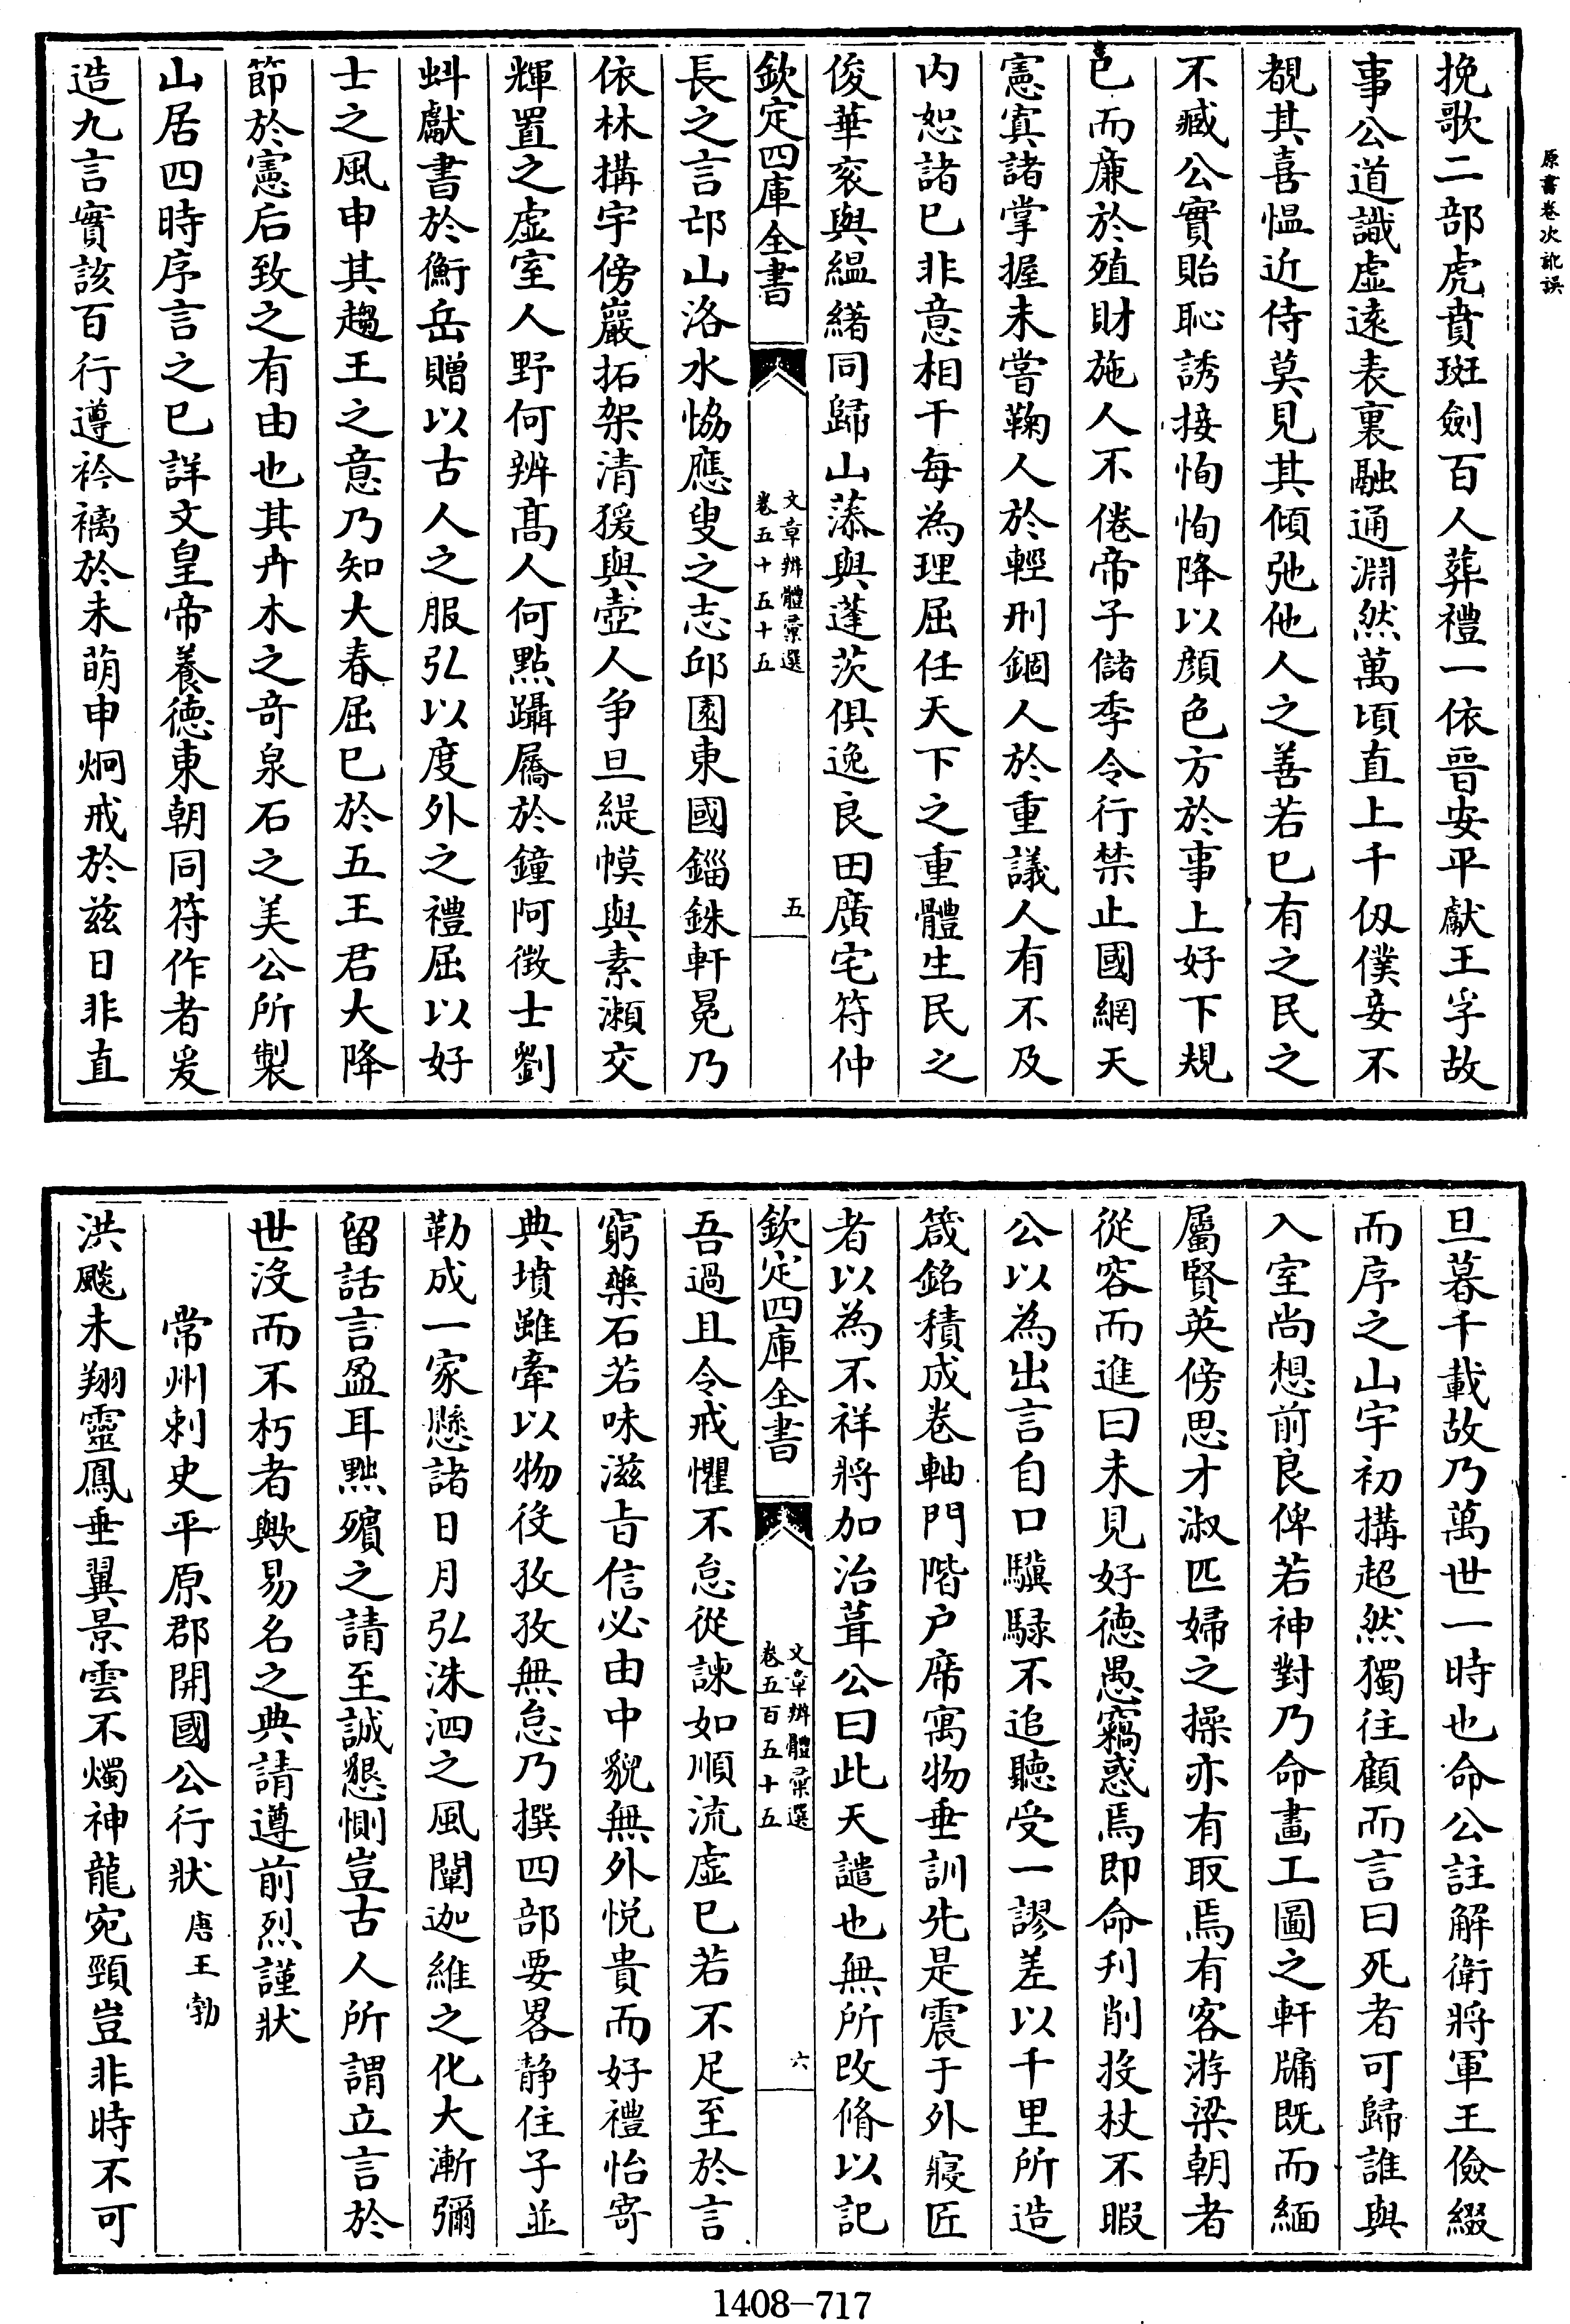 原書卷次訛誤
挽歌二部虎賁班劍百人葬禮一依晉安平獻王孚故
事公道識虛遠表裏融通淵然萬頃直上千仭僕妾不
覩其喜愠近侍莫見其傾弛他人之善若已有之民之
不臧公實貽恥誘接恂恂降以顔色方於事上好下規
已而廉於殖財施人不倦帝子儲季令行禁止國網天
憲寘諸掌握未嘗鞠人於輕刑錮人於重議人有不及
内恕諸已非意相干每為理屈任天下之重體生民之
俊華衮與緼緖同歸山藻與蓬茨俱逸良田廣宅符仲
欽定四庫全書
文章辨體彙選
卷五十五十五
五
長之言邙山洛水恊應叟之志邱園東國錙銖軒冕乃
依林搆宇傍巖拓架清猨與壺人争旦緹幙與素瀨交
輝置之虛室人野何辨髙人何點躡屩於鐘阿徴士劉
蚪獻書於衡岳贈以古人之服弘以度外之禮屈以好
士之風申其趨王之意乃知大春屈巳於五王君大降
節於憲后致之有由也其卉木之奇泉石之美公所製
山居四時序言之巳詳文皇帝養德東朝同符作者爰
造九言實該百行遵衿褵於未萌申炯戒於兹日非直
旦暮千載故乃萬世一時也命公註解衛將軍王儉綴
而序之山宇初搆超然獨往顧而言曰死者可歸誰與
入室尚想前良俾若神對乃命畫工圖之軒牖既而緬
屬賢英傍思才淑匹婦之操亦有取焉有客游梁朝者
從容而進曰未見好德愚竊惑焉即命刋削投杖不暇
公以為出言自口驥騄不追聽受一謬差以千里所造
箴銘積成卷軸門階户席寓物垂訓先是震于外寢匠
者以為不祥將加治葺公曰此天譴也無所改脩以記
欽定四庫全書
文章辨體彙選
卷五百五十五
六
吾過且令戒懼不怠從諫如順流虛已若不足至於言
窮藥石若味滋旨信必由中貌無外悦貴而好禮怡寄
典墳雖牽以物役孜孜無怠乃撰四部要畧静住子並
勒成一家懸諸日月弘洙泗之風闡迦維之化大漸彌
留話言盈耳黜殯之請至誠懇惻豈古人所謂立言於
世沒而不朽者歟易名之典請遵前烈謹狀
常州刺史平原郡開國公行狀 唐王勃
洪飈未翔靈鳳垂翼景雲不燭神龍宛頸豈非時不可
1408—717